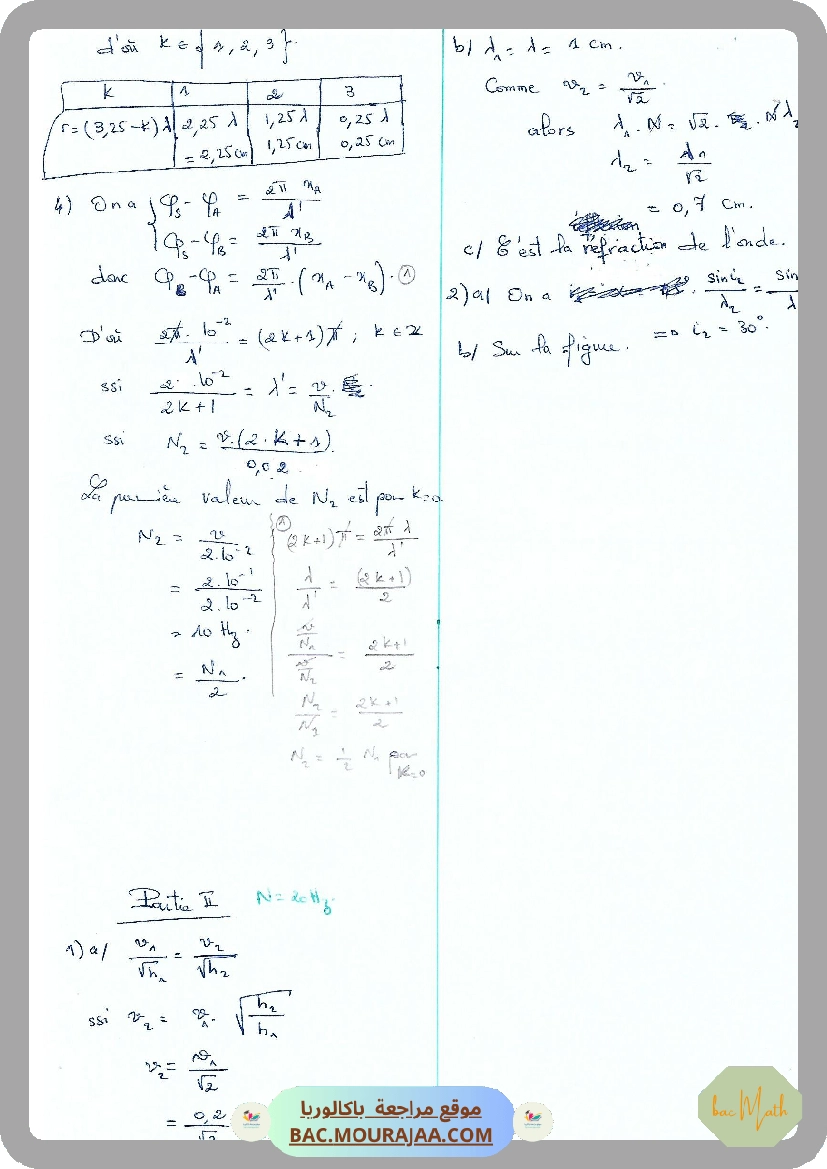 d'où K ∈ {1, 2, 3}.
K 1 2 3
r = (3,25 - K) λ 2,25 λ 1,25 λ 0,25 λ
= 2,25 cm 1,25 cm 0,25 cm
4) On a { φS - φA = 2π xA / λ'
φS - φB = 2π xB / λ'
donc φB - φA = 2π / λ' · (xA - xB) · ①
D'où 2π · 10⁻² / λ' = (2K + 1) π ; K ∈ Z
ssi 2 · 10⁻² / 2K + 1 = λ' = v / N₂ .
ssi N₂ = v · (2 · K + 1) / 0,02 .
La première valeur de N₂ est pour K = 0
N₂ = v / 2.10⁻²
= 2.10⁻¹ / 2.10⁻²
= 10 Hz .
= N₁ / 2 .
① (2K+1) π = 2π λ / λ'
λ / λ' = (2K+1) / 2
v/N₁ / v/N₂ = 2K+1 / 2
N₂ / N₁ = 2K+1 / 2
N₂ = 1/2 N₁ pour K=0
Partie II N = 20 Hz
1) a/ v₁ / √h₁ = v₂ / √h₂
ssi v₂ = v₁ · √(h₂ / h₁)
v₂ = v₁ / √2
= 0,2 / √2
b/ λ₁ = λ = 1 cm .
Comme v₂ = v₁ / √2 .
alors λ₁ · N = √2 · N λ₂
λ₂ = λ₁ / √2
= 0,7 cm .
c/ C'est la réfraction de l'onde.
2) a/ On a sin i₂ / λ₂ = sin / λ
=> i₂ = 30° .
b/ Sur la figure.
موقع مراجعة باكالوريا
BAC.MOURAJAA.COM
bac Math